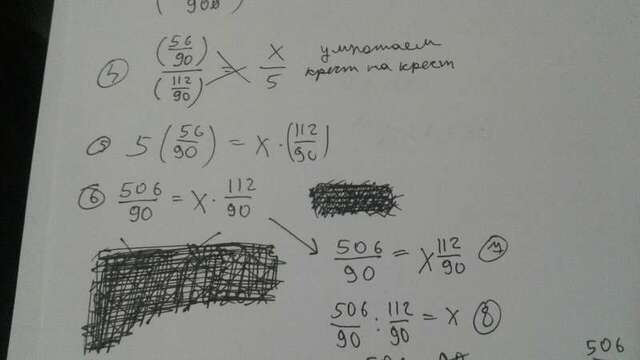 ④ (56/90)/(112/90) = x/5 умнотаем
крест на крест
⑤ 5(56/90) = x·(112/90)
⑥ 506/90 = x·112/90
506/90 = x 112/90 ⑦
506/90 : 112/90 = x ⑧
506